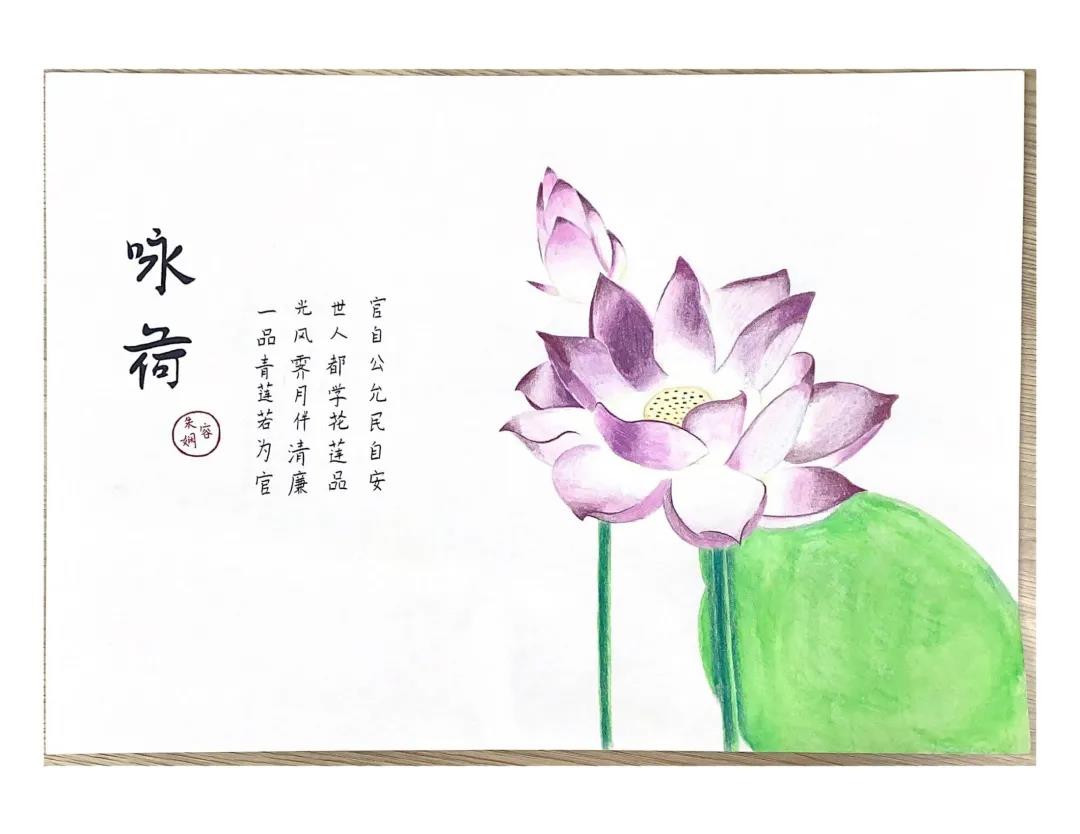 咏荷
朱娴容
一品青莲若为官
光风霁月伴清廉
世人都学花莲品
官自公允民自安